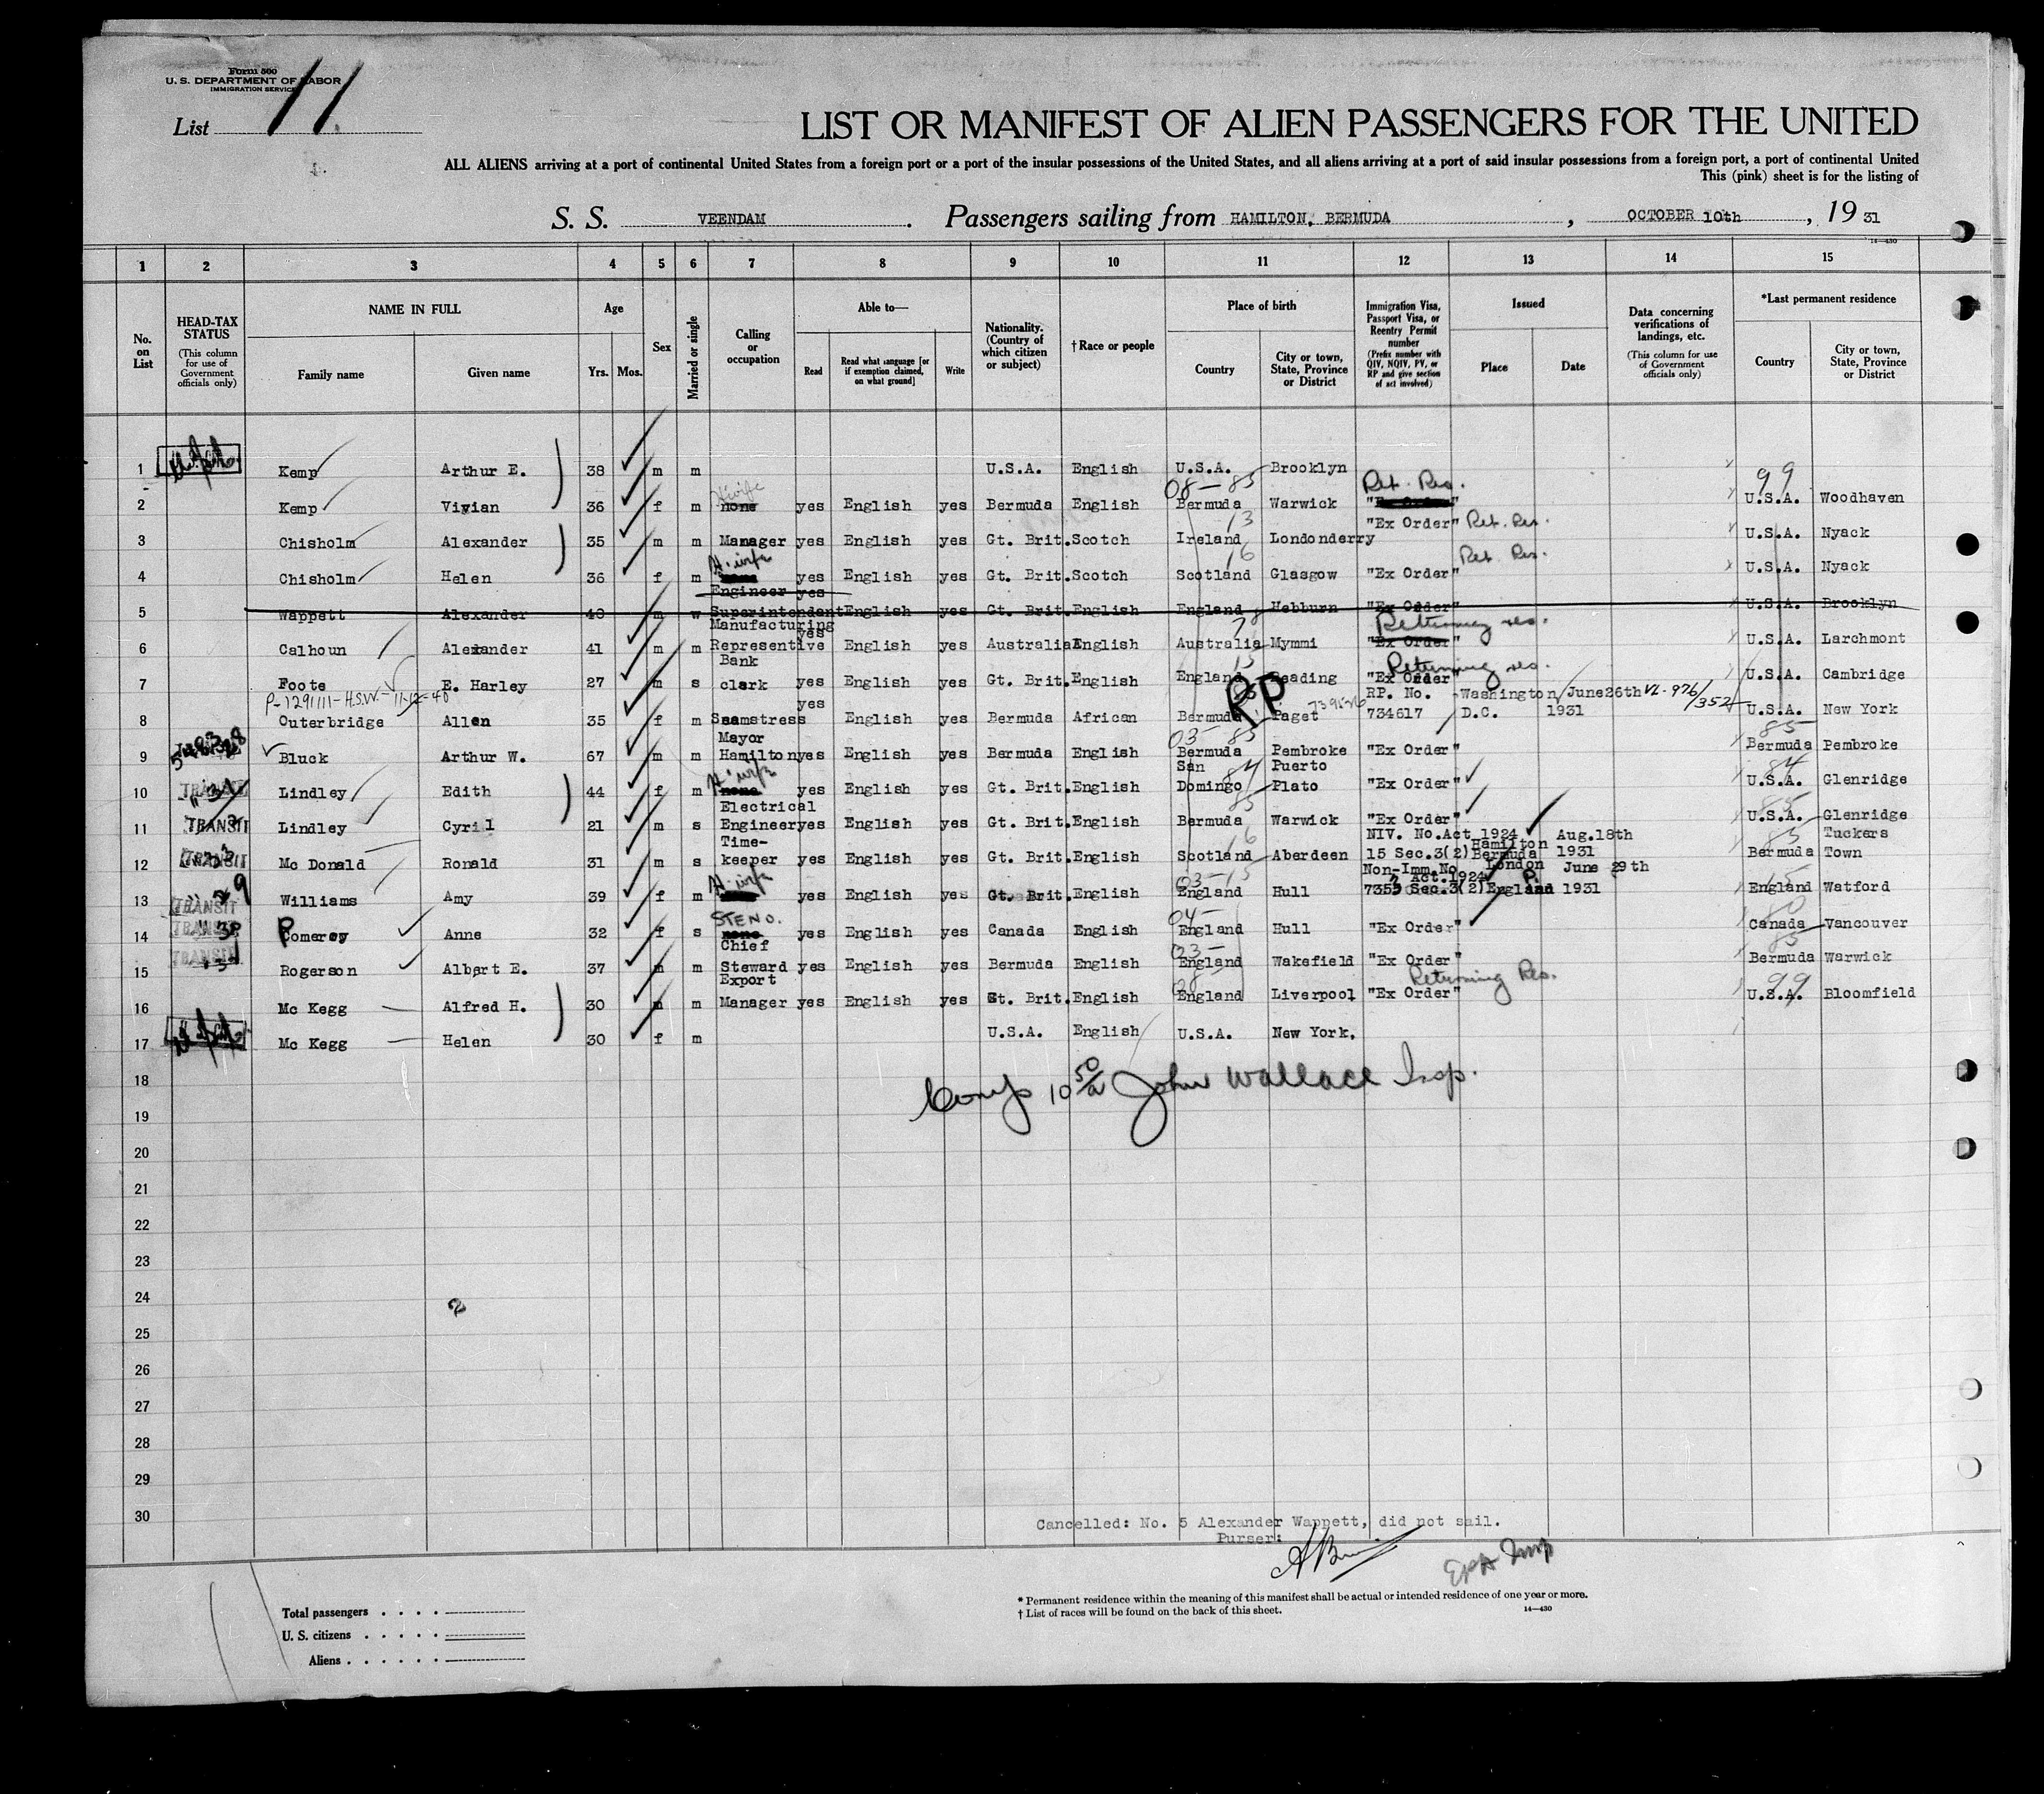 Form 500
U. S. DEPARTMENT OF LABOR
IMMIGRATION SERVICE
List 11
LIST OR MANIFEST OF ALIEN PASSENGERS FOR THE UNITED
ALL ALIENS arriving at a port of continental United States from a foreign port or a port of the insular possessions of the United States, and all aliens arriving at a port of said insular possessions from a foreign port, a port of continental United
This (pink) sheet is for the listing of
S. S. VEENDAM . Passengers sailing from HAMILTON, BERMUDA , OCTOBER 10th , 19 31
14—430
1 2 3 4 5 6 7 8 9 10 11 12 13 14 15
No. on List
HEAD-TAX STATUS (This column for use of Government officials only)
NAME IN FULL Family name Given name
Age Yrs. Mos.
Sex
Married or single
Calling or occupation
Able to— Read Read what language [or if exemption claimed, on what ground] Write
Nationality. (Country of which citizen or subject)
†Race or people
Place of birth Country City or town, State, Province or District
Immigration Visa, Passport Visa, or Reentry Permit number (Prefix number with QIV, NQIV, PV, or RP and give section of act involved)
Issued Place Date
Data concerning verifications of landings, etc. (This column for use of Government officials only)
*Last permanent residence Country City or town, State, Province or District
1 Kemp Arthur E. 38 m m U.S.A. English U.S.A. Brooklyn
08-85 Ret. Res. 99
2 Kemp Vivian 36 f m none H.wife yes English yes Bermuda English Bermuda Warwick "Ex Order" U.S.A. Woodhaven
13
3 Chisholm Alexander 35 m m Manager yes English yes Gt. Brit. Scotch Ireland Londonderry "Ex Order" Ret. Res. U.S.A. Nyack
16
4 Chisholm Helen 36 f m H. wife yes English yes Gt. Brit. Scotch Scotland Glasgow "Ex Order" Ret. Res. U.S.A. Nyack
5 Wappett Alexander 40 m w Engineer Superintendant yes English yes Gt. Brit. English England Hebburn "Ex Order" U.S.A. Brooklyn
Returning res.
6 Calhoun Alexander 41 m m Manufacturing Representive yes English yes Australia English Australia Mymmi "Ex Order" U.S.A. Larchmont
15 Returning res.
7 Foote E. Harley 27 m s Bank clark yes English yes Gt. Brit. English England Reading "Ex Order" U.S.A. Cambridge
P-1291111-H.S.W.-11-12-40
RP
8 Outerbridge Allen 35 f m Seamstress yes English yes Bermuda African Bermuda Paget RP. No. 734617 Washington D.C. June 26th 1931 VL-976/352 U.S.A. New York
03-85 85
9 Bluck Arthur W. 67 m m Mayor Hamilton yes English yes Bermuda English Bermuda Pembroke "Ex Order" Bermuda Pembroke
84 84
10 TRANSIT Lindley Edith 44 f m none H. wife yes English yes Gt. Brit. English San Domingo Puerto Plato "Ex Order" U.S.A. Glenridge
85 85
11 TRANSIT Lindley Cyril 21 m s Electrical Engineer yes English yes Gt. Brit. English Bermuda Warwick "Ex Order" U.S.A. Glenridge
16 85
12 TRANSIT Mc Donald Ronald 31 m s Time-keeper yes English yes Gt. Brit. English Scotland Aberdeen NIV. No. Act 1924 15 Sec.3(2) Hamilton Bermuda Aug. 18th 1931 Bermuda Tuckers Town
03-15 15
13 TRANSIT Williams Amy 39 f m H. wife yes English yes Gt. Brit. English England Hull Non-Imm. No. Act. 1924 7353 Sec.3(2) London England June 29th 1931 England Watford
04- 80
14 TRANSIT Pomeroy Anne 32 f s none STENO. yes English yes Canada English England Hull "Ex Order" Canada Vancouver
03- 85
15 TRANSIT Rogerson Albert E. 37 m m Chief Steward yes English yes Bermuda English England Wakefield "Ex Order" Bermuda Warwick
08- Returning Res. 99
16 Mc Kegg Alfred H. 30 m m Export Manager yes English yes Gt. Brit. English England Liverpool "Ex Order" U.S.A. Bloomfield
17 Mc Kegg Helen 30 f m U.S.A. English U.S.A. New York.
18
Comp 10 50/a John Wallace Insp.
19
20
21
22
23
24
2
25
26
27
28
29
30
Cancelled: No. 5 Alexander Wappett, did not sail.
Purser:
* Permanent residence within the meaning of this manifest shall be actual or intended residence of one year or more.
† List of races will be found on the back of this sheet. 14—430
Total passengers . . . .
U. S. citizens . . . . .
Aliens . . . . . .